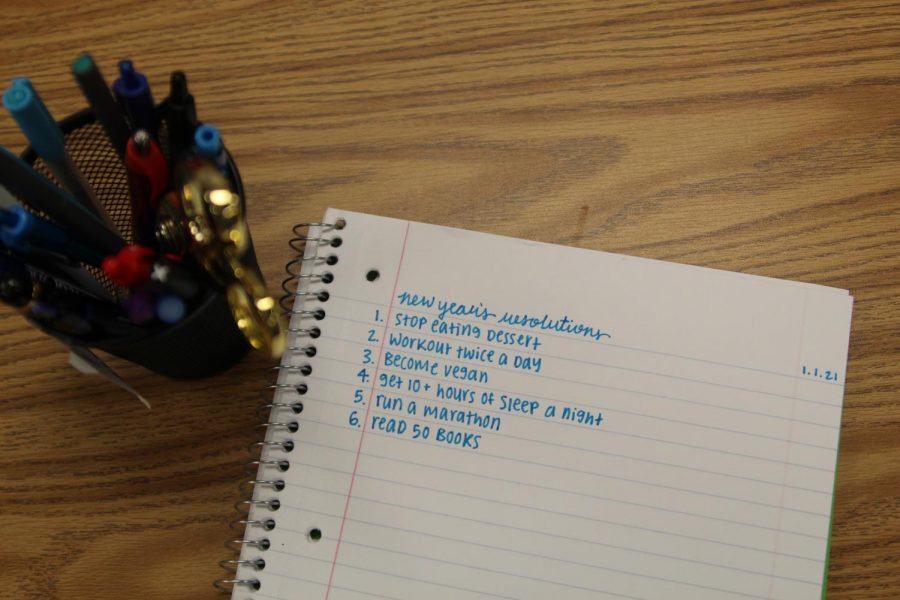 new year's resolutions
1. stop eating dessert
2. workout twice a day
1.1.21
3. Become vegan
4. get 10+ hours of sleep a night
5. run a marathon
6. read 50 Books